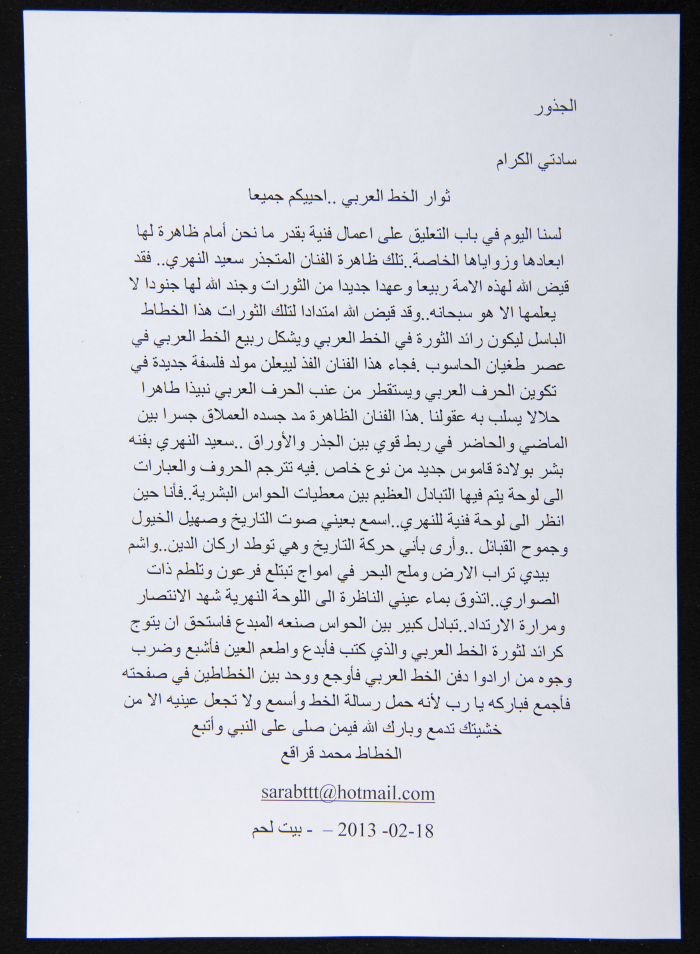 الجذور
سادتي الكرام
ثوار الخط العربي ..احييكم جميعا
لسنا اليوم في باب التعليق على اعمال فنية بقدر ما نحن أمام ظاهرة لها
ابعادها وزواياها الخاصة..تلك ظاهرة الفنان المتجذر سعيد النهري.. فقد
قيض الله لهذه الامة ربيعا وعهدا جديدا من الثورات وجند الله لها جنودا لا
يعلمها الا هو سبحانه..وقد قيض الله امتدادا لتلك الثورات هذا الخطاط
الباسل ليكون رائد الثورة في الخط العربي ويشكل ربيع الخط العربي في
عصر طغيان الحاسوب .فجاء هذا الفنان الفذ ليعلن مولد فلسفة جديدة في
تكوين الحرف العربي ويستقطر من عنب الحرف العربي نبيذا طاهرا
حلالا يسلب به عقولنا .هذا الفنان الظاهرة مد جسده العملاق جسرا بين
الماضي والحاضر في ربط قوي بين الجذر والأوراق ..سعيد النهري بفنه
بشر بولادة قاموس جديد من نوع خاص .فيه تترجم الحروف والعبارات
الى لوحة يتم فيها التبادل العظيم بين معطيات الحواس البشرية..فأنا حين
انظر الى لوحة فنية للنهري..اسمع بعيني صوت التاريخ وصهيل الخيول
وجموح القبائل ..وأرى بأني حركة التاريخ وهي توطد اركان الدين..واشم
بيدي تراب الارض وملح البحر في امواج تبتلع فرعون وتلطم ذات
الصواري..اتذوق بماء عيني الناظرة الى اللوحة النهرية شهد الانتصار
ومرارة الارتداد..تبادل كبير بين الحواس صنعه المبدع فاستحق ان يتوج
كرائد لثورة الخط العربي والذي كتب فأبدع واطعم العين فأشبع وضرب
وجوه من ارادوا دفن الخط العربي فأوجع ووحد بين الخطاطين في صفحته
فأجمع فباركه يا رب لأنه حمل رسالة الخط وأسمع ولا تجعل عينيه الا من
خشيتك تدمع وبارك الله فيمن صلى على النبي وأتبع
الخطاط محمد قراقع
sarabttt@hotmail.com
18-02- 2013 – - بيت لحم